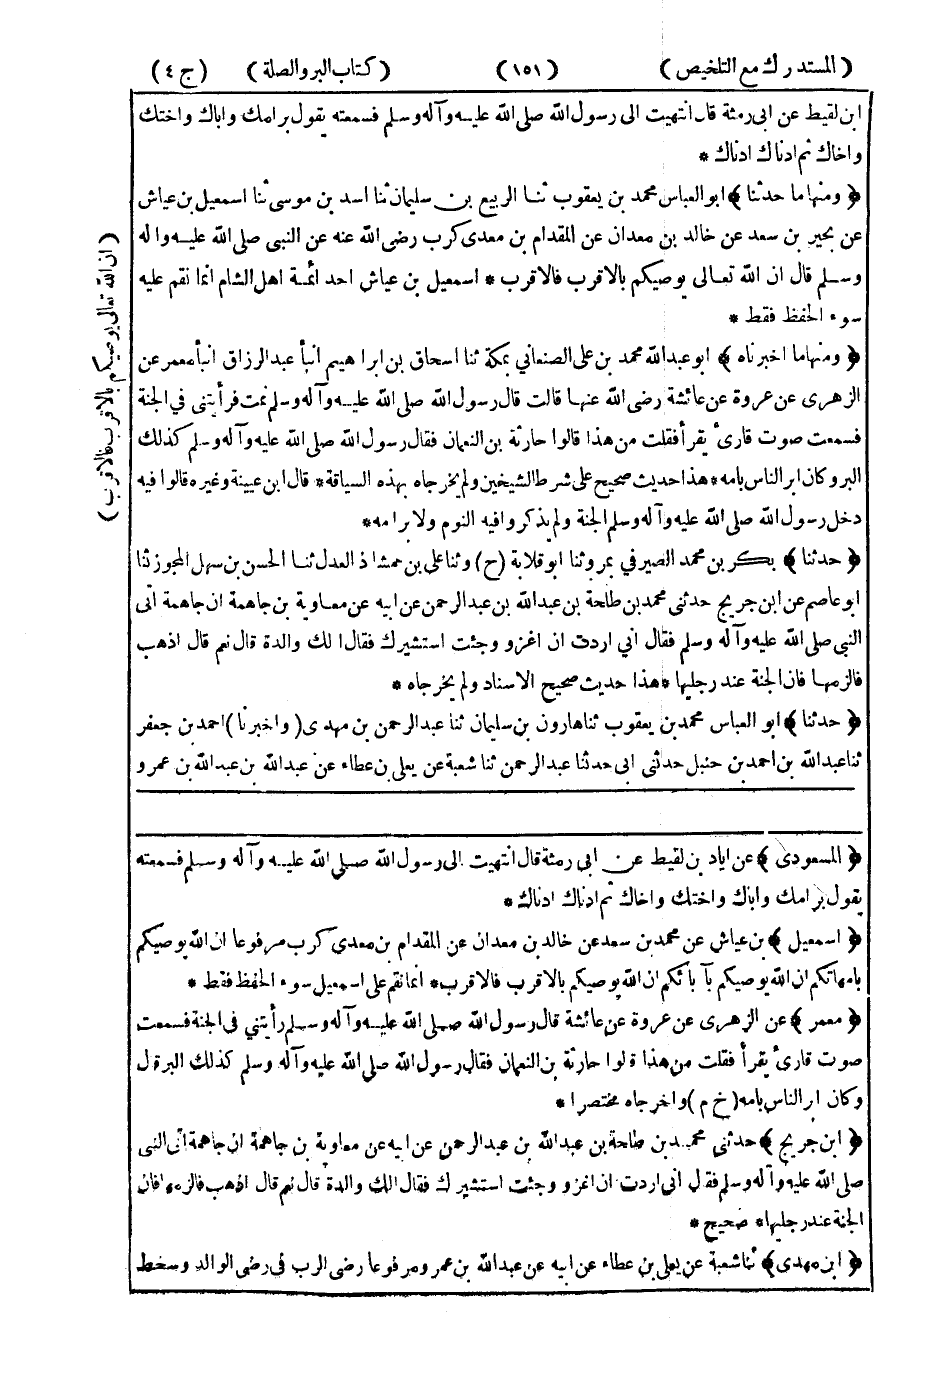 (المستدرك مع التلخيص) (١٥١) (كتاب البر والصلة) (ج ٤)
ابن لقيط عن ابى رمثة قال انتهيت الى رسول الله صلى الله عليه وآله وسلم فسمعته يقول بر امك واباك واختك
واخاك ثم ادناك ادناك *
﴿ ومنها ما حدثنا ﴾ ابو العباس محمد بن يعقوب ثنا الربيع بن سليمان ثنا اسد بن موسى ثنا اسمعيل بن عياش
عن بحير بن سعد عن خالد بن معدان عن المقدام بن معدى كرب رضى الله عنه عن النبى صلى الله عليه واله
وسلم قال ان الله تعالى يوصيكم بالاقرب فالاقرب * اسمعيل بن عياش احد ائمة اهل الشام انما نقم عليه
سوء الحفظ فقط *
﴿ ومنها ما اخبرناه ﴾ ابو عبد الله محمد بن على الصنعاني بمكة ثنا اسحاق بن ابراهيم انبأ عبد الرزاق انبأ معمر عن
الزهرى عن عروة عن عائشة رضى الله عنها قالت قال رسول الله صلى الله عليه وآله وسلم نمت فرأيتنى في الجنة
فسمعت صوت قارئ يقرأ فقلت من هذا قالوا حارثة بن النعمان فقال رسول الله صلى الله عليه وآله وسلم كذلك
البر وكان ابر الناس بامه * هذا حديث صحيح على شرط الشيخين ولم يخرجاه بهذه السياقة * قال ابن عيينة وغيره قالوا فيه
دخل رسول الله صلى الله عليه وآله وسلم الجنة ولم يذكروا فيه النوم ولا بر امه *
﴿ حدثنا ﴾ بكر بن محمد الصيرفي بمرو ثنا ابو قلابة (ح) وثنا على بن حمشاذ العدل ثنا الحسن بن سهل المجوز ثنا
ابو عاصم عن ابن جريج حدثنى محمد بن طلحة بن عبد الله بن عبد الرحمن عن ابيه عن معاوية بن جاهمة ان جاهمة اتى
النبى صلى الله عليه وآله وسلم فقال انى اردت ان اغزو وجئت استشيرك فقال الك والدة قال نعم قال اذهب
فالزمها فان الجنة عند رجليها * هذا حديث صحيح الاسناد ولم يخرجاه *
﴿ حدثنا ﴾ ابو العباس محمد بن يعقوب ثنا هارون بن سليمان ثنا عبد الرحمن بن مهدى (واخبرنا) احمد بن جعفر
ثنا عبد الله بن احمد بن حنبل حدثنى ابى حدثنا عبد الرحمن ثنا شعبة عن يعلى بن عطاء عن عبد الله بن عبد الله بن عمرو
(ان الله تعالى يوصيكم بالاقرب فالاقرب)
﴿ المسعودى ﴾ عن اياد بن لقيط عن ابى رمثة قال انتهيت الى رسول الله صلى الله عليه وآله وسلم فسمعته
يقول بر امك واباك واختك واخاك ثم ادناك ادناك *
﴿ اسمعيل ﴾ بن عياش عن محمد بن سعد عن خالد بن معدان عن المقدام بن معدى كرب مرفوعا ان الله يوصيكم
بامهاتكم ان الله يوصيكم بآبائكم ان الله يوصيكم بالاقرب فالاقرب * انما نقم على اسمعيل سوء الحفظ فقط *
﴿ معمر ﴾ عن الزهرى عن عروة عن عائشة قال رسول الله صلى الله عليه وآله وسلم رأيتني فى الجنة فسمعت
صوت قارئ يقرأ فقلت من هذا قالوا حارثة بن النعمان فقال رسول الله صلى الله عليه وآله وسلم كذلك البر قال
وكان ابر الناس بامه (خ م) واخرجاه مختصرا *
﴿ ابن جريج ﴾ حدثنى محمد بن طلحة بن عبد الله بن عبد الرحمن عن ابيه عن معاوية بن جاهمة ان جاهمة اتى النبى
صلى الله عليه وآله وسلم فقال انى اردت ان اغزو وجئت استشيرك فقال الك والدة قال نعم قال اذهب فالزمها فان
الجنة عند رجليها * صحيح *
﴿ ابن مهدى ﴾ ثنا شعبة عن يعلى بن عطاء عن ابيه عن عبد الله بن عمرو مرفوعا رضى الرب فى رضى الوالد وسخط